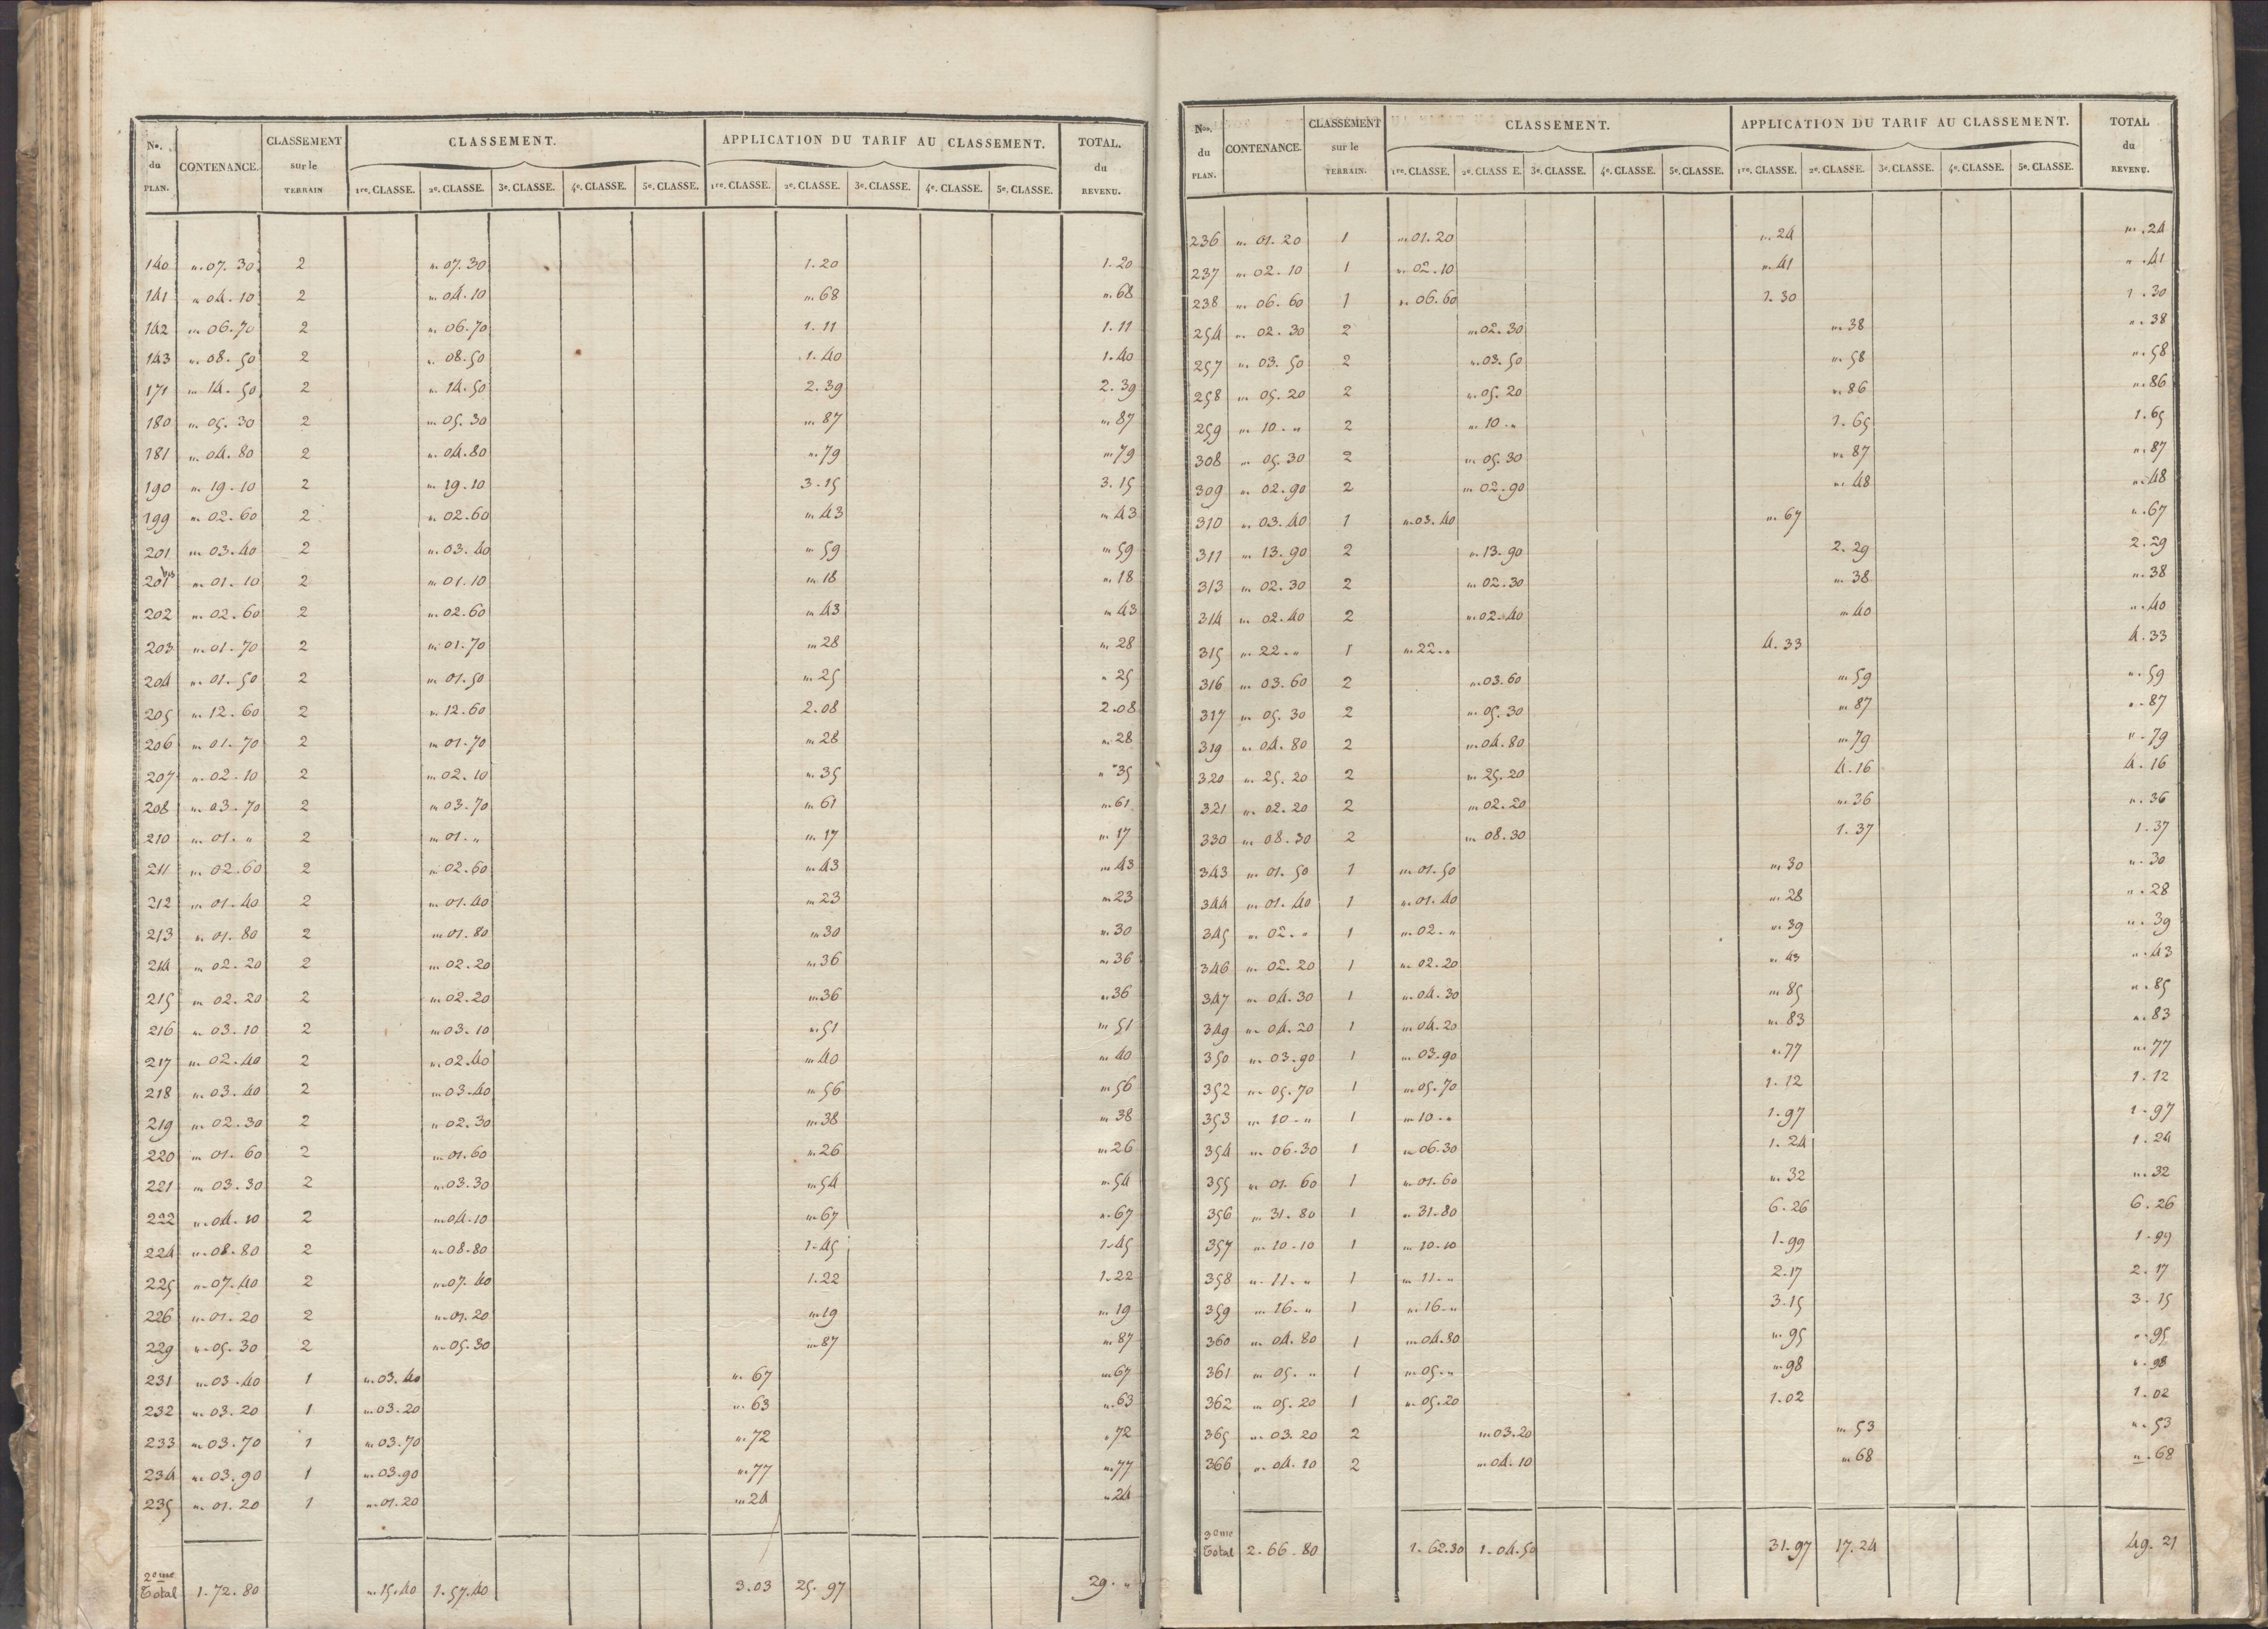 No. du PLAN. CONTENANCE. CLASSEMENT sur le TERRAIN CLASSEMENT. APPLICATION DU TARIF AU CLASSEMENT. TOTAL. du REVENU.
1re. CLASSE. 2e. CLASSE. 3e. CLASSE. 4e. CLASSE. 5e. CLASSE. 1re. CLASSE. 2e. CLASSE. 3e. CLASSE. 4e. CLASSE. 5e. CLASSE.
140 „. 07. 30 2 „. 07. 30 1. 20 1. 20
141 „. 04. 10 2 „. 04. 10 „. 68 „. 68
142 „. 06. 70 2 „. 06. 70 1. 11 1. 11
143 „. 08. 50 2 „. 08. 50 1. 40 1. 40
171 „. 14. 50 2 „. 14. 50 2. 39 2. 39
180 „. 05. 30 2 „. 05. 30 „. 87 „. 87
181 „. 04. 80 2 „. 04. 80 „. 79 „. 79
190 „. 19. 10 2 „. 19. 10 3. 15 3. 15
199 „. 02. 60 2 „. 02. 60 „. 43 „. 43
201 „. 03. 40 2 „. 03. 40 „. 59 „. 59
201 bis „. 01. 10 2 „. 01. 10 „. 18 „. 18
202 „. 02. 60 2 „. 02. 60 „. 43 „. 43
203 „. 01. 70 2 „. 01. 70 „. 28 „. 28
204 „. 01. 50 2 „. 01. 50 „. 25 „. 25
205 „. 12. 60 2 „. 12. 60 2. 08 2. 08
206 „. 01. 70 2 „. 01. 70 „. 28 „. 28
207 „. 02. 10 2 „. 02. 10 „. 35 „. 35
208 „. 03. 70 2 „. 03. 70 „. 61 „. 61
210 „. 01. „ 2 „. 01. „ „. 17 „. 17
211 „. 02. 60 2 „. 02. 60 „. 43 „. 43
212 „. 01. 40 2 „. 01. 40 „. 23 „. 23
213 „. 01. 80 2 „. 01. 80 „. 30 „. 30
214 „. 02. 20 2 „. 02. 20 „. 36 „. 36
215 „. 02. 20 2 „. 02. 20 „. 36 „. 36
216 „. 03. 10 2 „. 03. 10 „. 51 „. 51
217 „. 02. 40 2 „. 02. 40 „. 40 „. 40
218 „. 03. 40 2 „. 03. 40 „. 56 „. 56
219 „. 02. 30 2 „. 02. 30 „. 38 „. 38
220 „. 01. 60 2 „. 01. 60 „. 26 „. 26
221 „. 03. 30 2 „. 03. 30 „. 54 „. 54
222 „. 04. 10 2 „. 04. 10 „. 67 „. 67
224 „. 08. 80 2 „. 08. 80 1. 45 1. 45
225 „. 07. 40 2 „. 07. 40 1. 22 1. 22
226 „. 01. 20 2 „. 01. 20 „. 19 „. 19
229 „. 05. 30 2 „. 05. 30 „. 87 „. 87
231 „. 03. 40 1 „. 03. 40 „. 67 „. 67
232 „. 03. 20 1 „. 03. 20 „. 63 „. 63
233 „. 03. 70 1 „. 03. 70 „. 72 „. 72
234 „. 03. 90 1 „. 03. 90 „. 77 „. 77
235 „. 01. 20 1 „. 01. 20 „. 24 „. 24
2eme Total 1. 72. 80 „. 15. 40 1. 57. 40 3. 03 25. 97 29. „
Nos. du PLAN. CONTENANCE. CLASSEMENT sur le TERRAIN. CLASSEMENT. APPLICATION DU TARIF AU CLASSEMENT. TOTAL du REVENU.
1re. CLASSE. 2e. CLASS E. 3e. CLASSE. 4e. CLASSE. 5e. CLASSE. 1re. CLASSE. 2e. CLASSE. 3e. CLASSE. 4e. CLASSE. 5e. CLASSE.
236 „. 01. 20 1 „. 01. 20 „. 24 „. 24
237 „. 02. 10 1 „. 02. 10 „. 41 „. 41
238 „. 06. 60 1 „. 06. 60 1. 30 1. 30
254 „. 02. 30 2 „. 02. 30 „. 38 „. 38
257 „. 03. 50 2 „. 03. 50 „. 58 „. 58
258 „. 05. 20 2 „. 05. 20 „. 86 „. 86
259 „. 10. „ 2 „. 10. „ 1. 65 1. 65
308 „. 05. 30 2 „. 05. 30 „. 87 „. 87
309 „. 02. 90 2 „. 02. 90 „. 48 „. 48
310 „. 03. 40 1 „. 03. 40 „. 67 „. 67
311 „. 13. 90 2 „. 13. 90 2. 29 2. 29
313 „. 02. 30 2 „. 02. 30 „. 38 „. 38
314 „. 02. 40 2 „. 02. 40 „. 40 „. 40
315 „. 22. „ 1 „. 22. „ 4. 33 4. 33
316 „. 03. 60 2 „. 03. 60 „. 59 „. 59
317 „. 05. 30 2 „. 05. 30 „. 87 „. 87
319 „. 04. 80 2 „. 04. 80 „. 79 „. 79
320 „. 25. 20 2 „. 25. 20 4. 16 4. 16
321 „. 02. 20 2 „. 02. 20 „. 36 „. 36
330 „. 08. 30 2 „. 08. 30 1. 37 1. 37
343 „. 01. 50 1 „. 01. 50 „. 30 „. 30
344 „. 01. 40 1 „. 01. 40 „. 28 „. 28
345 „. 02. „ 1 „. 02. „ „. 39 „. 39
346 „. 02. 20 1 „. 02. 20 „. 43 „. 43
347 „. 04. 30 1 „. 04. 30 „. 85 „. 85
349 „. 04. 20 1 „. 04. 20 „. 83 „. 83
350 „. 03. 90 1 „. 03. 90 „. 77 „. 77
352 „. 05. 70 1 „. 05. 70 1. 12 1. 12
353 „. 10. „ 1 „. 10. „ 1. 97 1. 97
354 „. 06. 30 1 „. 06. 30 1. 24 1. 24
355 „. 01. 60 1 „. 01. 60 „. 32 „. 32
356 „. 31. 80 1 „. 31. 80 6. 26 6. 26
357 „. 10. 10 1 „. 10. 10 1. 99 1. 99
358 „. 11. „ 1 „. 11. „ 2. 17 2. 17
359 „. 16. „ 1 „. 16. „ 3. 15 3. 15
360 „. 04. 80 1 „. 04. 80 „. 95 „. 95
361 „. 05. „ 1 „. 05. „ „. 98 „. 98
362 „. 05. 20 1 „. 05. 20 1. 02 1. 02
365 „. 03. 20 2 „. 03. 20 „. 53 „. 53
366 „. 04. 10 2 „. 04. 10 „. 68 „. 68
3eme Total 2. 66. 80 1. 62. 30 1. 04. 50 31. 97 17. 24 49. 21